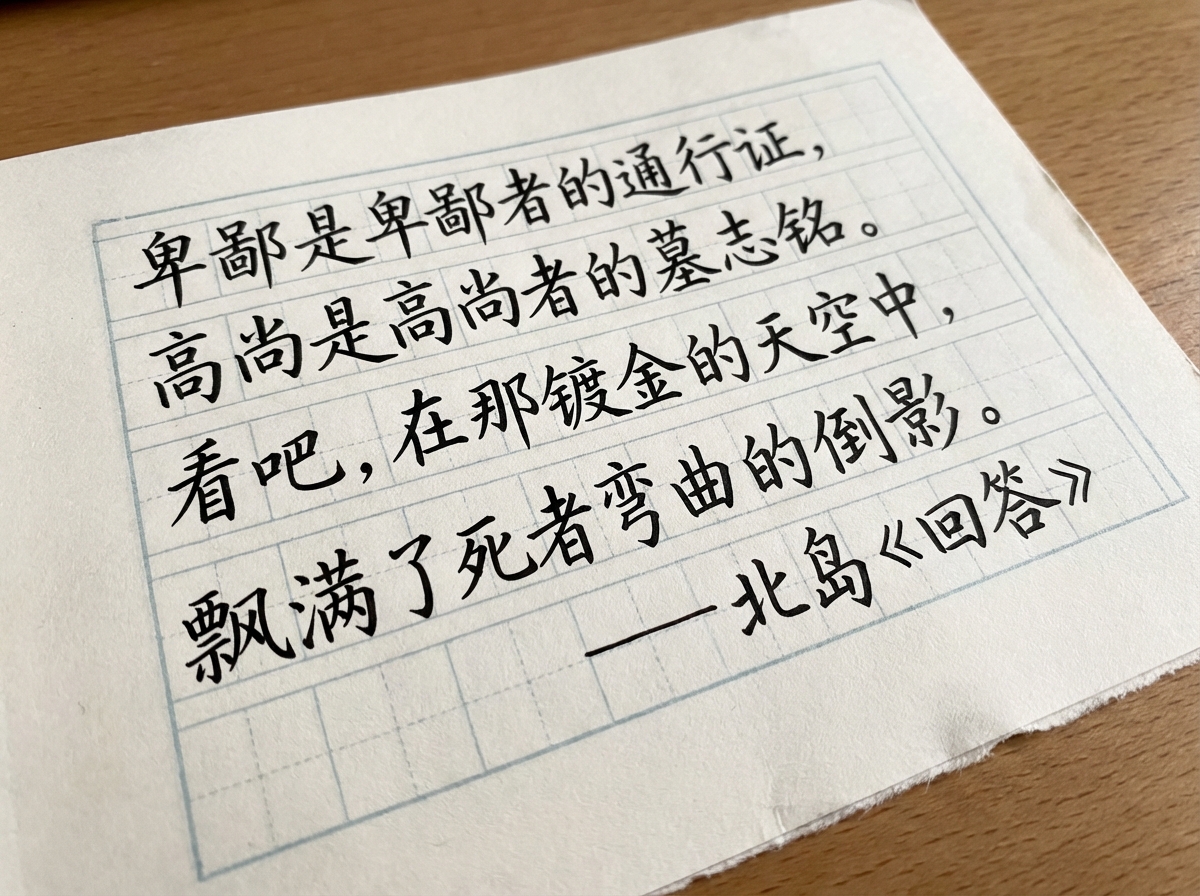 卑鄙是卑鄙者的通行证，
高尚是高尚者的墓志铭。
看吧，在那镀金的天空中，
飘满了死者弯曲的倒影。
——北岛《回答》